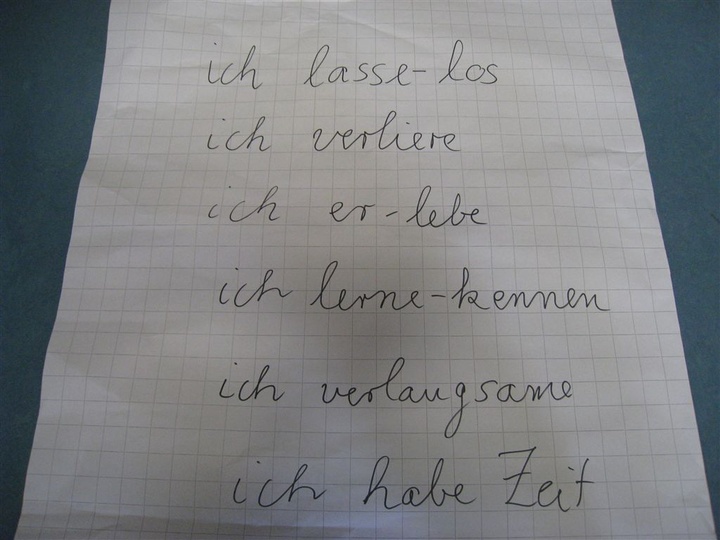 ich lasse-los
ich verliere
ich er-lebe
ich lerne-kennen
ich verlangsame
ich habe Zeit